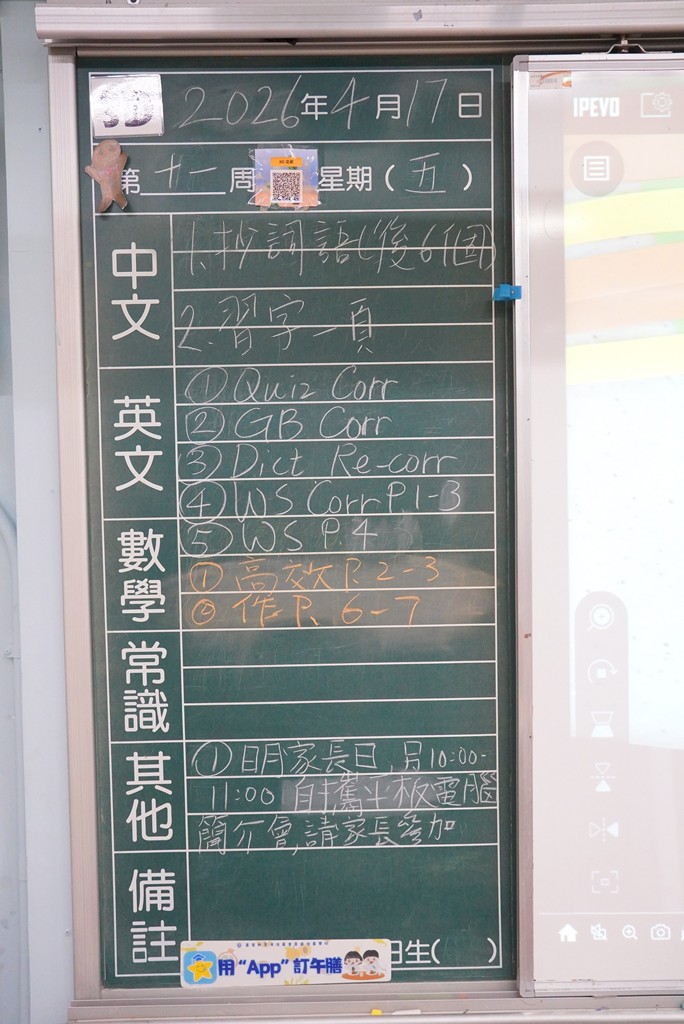 5D
2026年4月17日
第十一周 星期(五)
中文
1.抄詞語(後6個)
2.習字一頁
英文
①Quiz Corr
②GB Corr
③Dict Re-corr
④WS Corr P.1-3
⑤WS P.4
數學
①高效 P.2-3
②作 P. 6-7
常識
其他
①明家長日,另10:00-
11:00 自攜平板電腦
簡介會,請家長參加
備註
用“App”訂午膳
日生( )
IPEVO